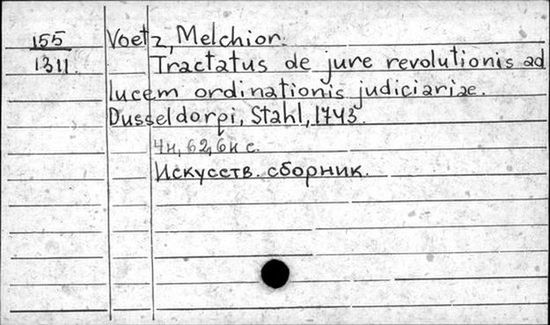 155 Voetz, Melchior.
1311. Tractatus de jure revolutionis ad
lucem ordinationis judiciariae.
Dusseldorpi, Stahl, 1743.
4н, 62, 6н с.
Искусств. сборник.